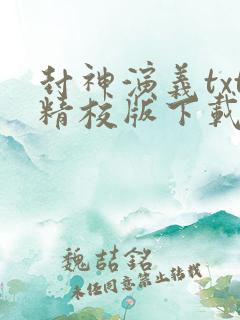 封神演义txt
精校版下载
魏喆銘
未经同意禁止转载